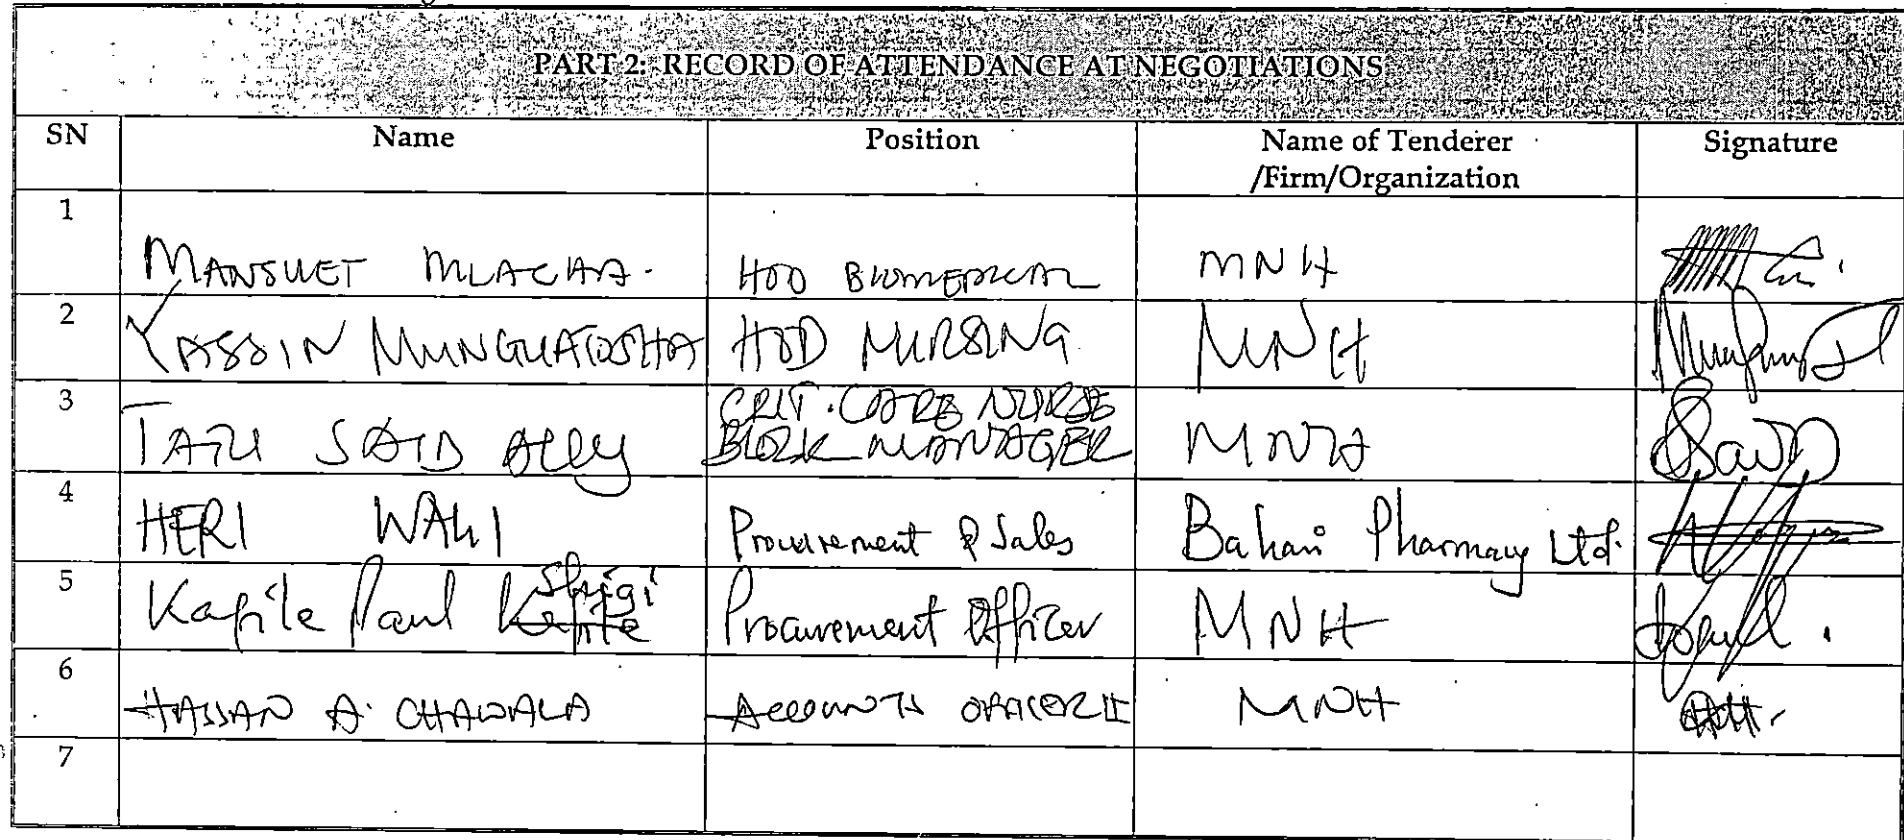 PART 2: RECORD OF ATTENDANCE AT NEGOTIATIONS
SN Name Position Name of Tenderer Signature
/Firm/Organization
1
MANSUET MLACHA. HOD BIOMEDICAL MNH
2
YASSIN MUNGUATOSHA HOD NURSING MNH
3 CRIT. CARE NURSE
TATU SAID ALLY BLOCK MANAGER MNH
4
HERI WALI Procurement & Sales Bahari Pharmacy Ltd.
5 Shigi
Kapile Paul Kapile Procurement Officer MNH
6
HASSAN A. CHAWALA ACCOUNTS OFFICER II MNH
7